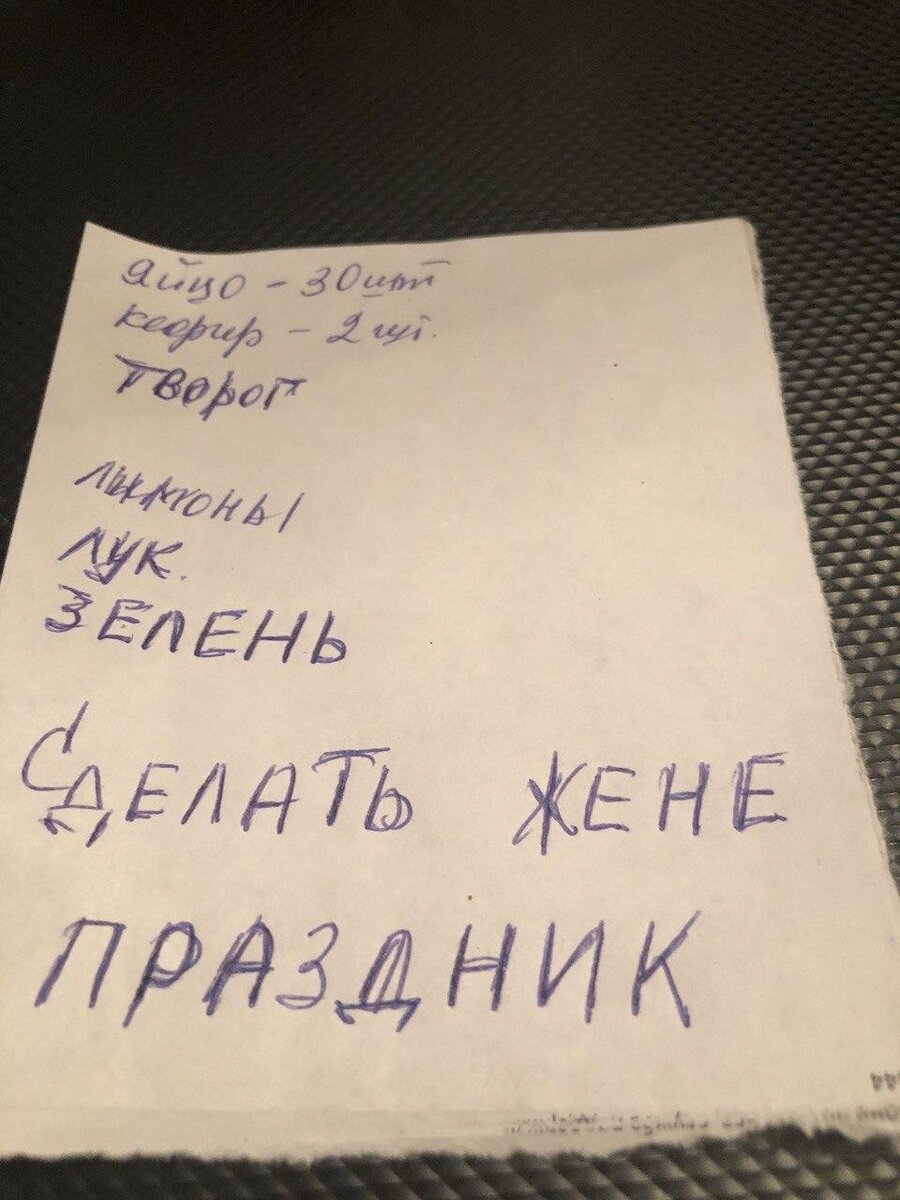 яйцо - 30 шт
кефир - 2 шт.
творог
лимоны
лук.
ЗЕЛЕНЬ
СДЕЛАТЬ ЖЕНЕ
ПРАЗДНИК